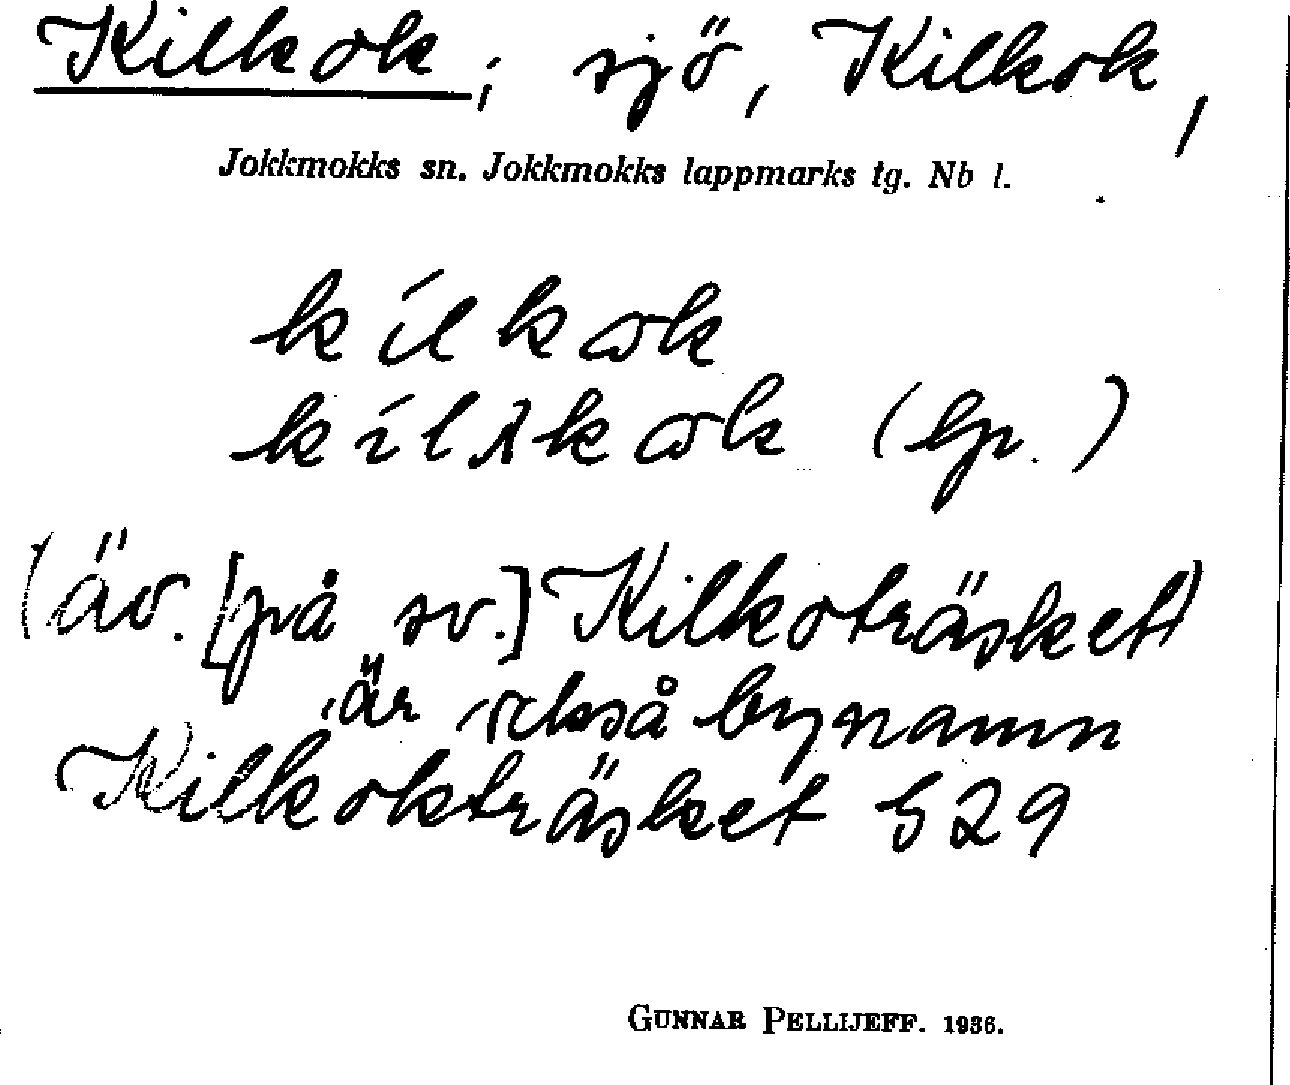 Kilkok; sjö, Kilkok,
Jokkmokks sn. Jokkmokks lappmarks tg. Nb l.
kílkok
(lp.)
(äv. [på sv.] Kilkoträsket)
är också bynamn
Kilkokträsket 529
GUNNAR PELLIJEFF. 1936.